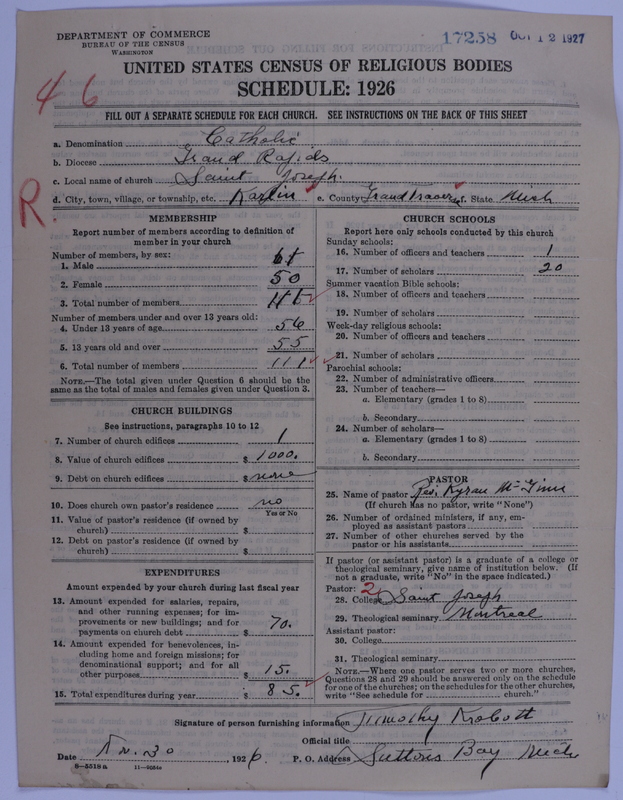 DEPARTMENT OF COMMERCE
BUREAU OF THE CENSUS
WASHINGTON
17258 OCT 12 1927
UNITED STATES CENSUS OF RELIGIOUS BODIES
SCHEDULE: 1926
46
R.
FILL OUT A SEPARATE SCHEDULE FOR EACH CHURCH. SEE INSTRUCTIONS ON THE BACK OF THIS SHEET
a. Denomination Catholic
b. Diocese Grand Rapids
c. Local name of church Saint Joseph.
d. City, town, village, or township, etc. Karlin e. County Grand Traverse f. State Mich
MEMBERSHIP
Report number of members according to definition of
member in your church
Number of members, by sex:
1. Male 61
2. Female 50
3. Total number of members
Number of members under and over 13 years old:
4. Under 13 years of age 56
5. 13 years old and over 55
6. Total number of members 111
NOTE.—The total given under Question 6 should be the
same as the total of males and females given under Question 3.
CHURCH BUILDINGS
See instructions, paragraphs 10 to 12
7. Number of church edifices 1
8. Value of church edifices $ 1000.
9. Debt on church edifices $ none
10. Does church own pastor's residence no
Yes or No
11. Value of pastor's residence (if owned by
church) $
12. Debt on pastor's residence (if owned by
church) $
EXPENDITURES
Amount expended by your church during last fiscal year
13. Amount expended for salaries, repairs,
and other running expenses; for im-
provements or new buildings; and for
payments on church debt $ 70.
14. Amount expended for benevolences, in-
cluding home and foreign missions; for
denominational support; and for all
other purposes $ 15.
15. Total expenditures during year $ 85.
CHURCH SCHOOLS
Report here only schools conducted by this church
Sunday schools:
16. Number of officers and teachers 1
17. Number of scholars 20
Summer vacation Bible schools:
18. Number of officers and teachers
19. Number of scholars
Week-day religious schools:
20. Number of officers and teachers
21. Number of scholars
Parochial schools:
22. Number of administrative officers
23. Number of teachers—
a. Elementary (grades 1 to 8)
b. Secondary
24. Number of scholars—
a. Elementary (grades 1 to 8)
b. Secondary
PASTOR
25. Name of pastor Rev. Kyran
(If church has no pastor, write "None")
26. Number of ordained ministers, if any, em-
ployed as assistant pastors
27. Number of other churches served by the
pastor or his assistants
If pastor (or assistant pastor) is a graduate of a college or
theological seminary, give name of institution below. (If
not a graduate, write "No" in the space indicated.)
Pastor: 2
28. College Saint Joseph
29. Theological seminary Montreal
Assistant pastor:
30. College
31. Theological seminary
NOTE.—Where one pastor serves two or more churches,
Questions 28 and 29 should be answered only on the schedule
for one of the churches; on the schedules for the other churches,
write "See schedule for church."
Signature of person furnishing information Timothy
Official title
Date 30, 1926 P. O. Address Suttons Bay Mich
8—5518a 11—9054a